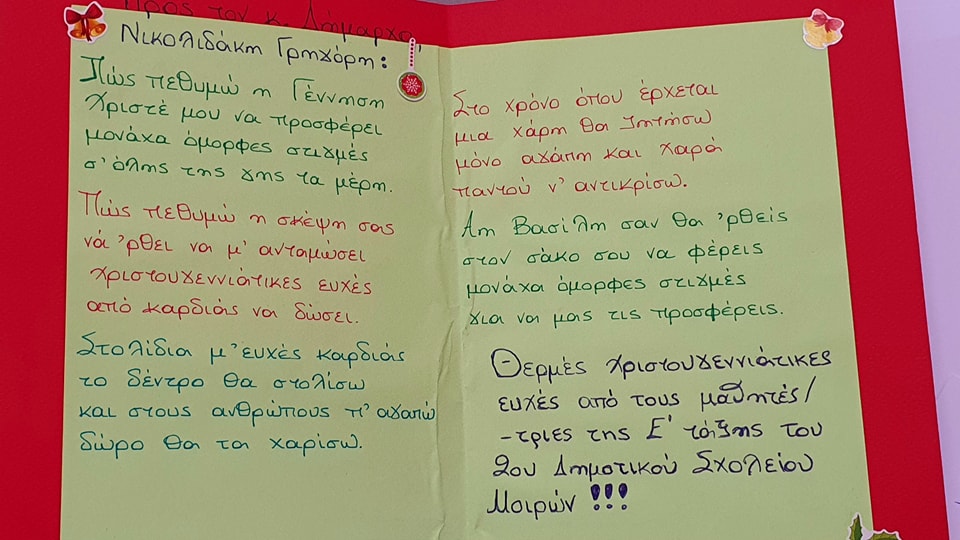 Προς τον κ. Δήμαρχο,
Νικολιδάκη Γρηγόρη:
Πώς πεθυμώ η Γέννηση
Χριστέ μου να προσφέρει
μονάχα όμορφες στιγμές
σ' όλης της γης τα μέρη.
Πώς πεθυμώ η σκέψη σας
νά 'ρθει να μ' ανταμώσει
Χριστουγεννιάτικες ευχές
από καρδιάς να δώσει.
Στολίδια μ' ευχές καρδιάς
το δέντρο θα στολίσω
και στους ανθρώπους π' αγαπώ
δώρο θα τα χαρίσω.
Στο χρόνο όπου έρχεται
μια χάρη θα ζητήσω
μόνο αγάπη και χαρά
παντού ν' αντικρίσω.
Αη Βασίλη σαν θα 'ρθεις
στον σάκο σου να φέρεις
μονάχα όμορφες στιγμές
για να μας τις προσφέρεις.
Θερμές Χριστουγεννιάτικες
ευχές από τους μαθητές/
-τριες της Ε' τάξης του
2ου Δημοτικού Σχολείου
Μοιρών !!!